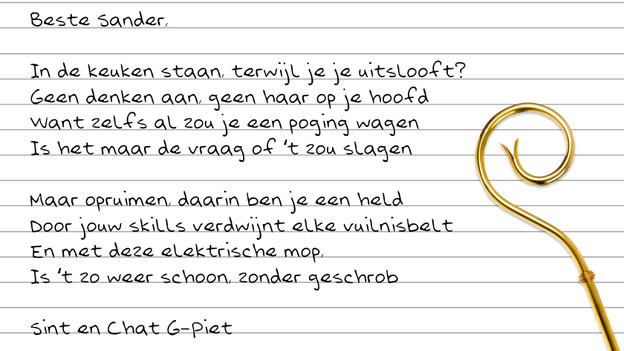 Beste Sander,
In de keuken staan, terwijl je je uitslooft?
Geen denken aan, geen haar op je hoofd
Want zelfs al zou je een poging wagen
Is het maar de vraag of 't zou slagen
Maar opruimen, daarin ben je een held
Door jouw skills verdwijnt elke vuilnisbelt
En met deze elektrische mop,
Is 't zo weer schoon, zonder geschrob
Sint en Chat G-Piet